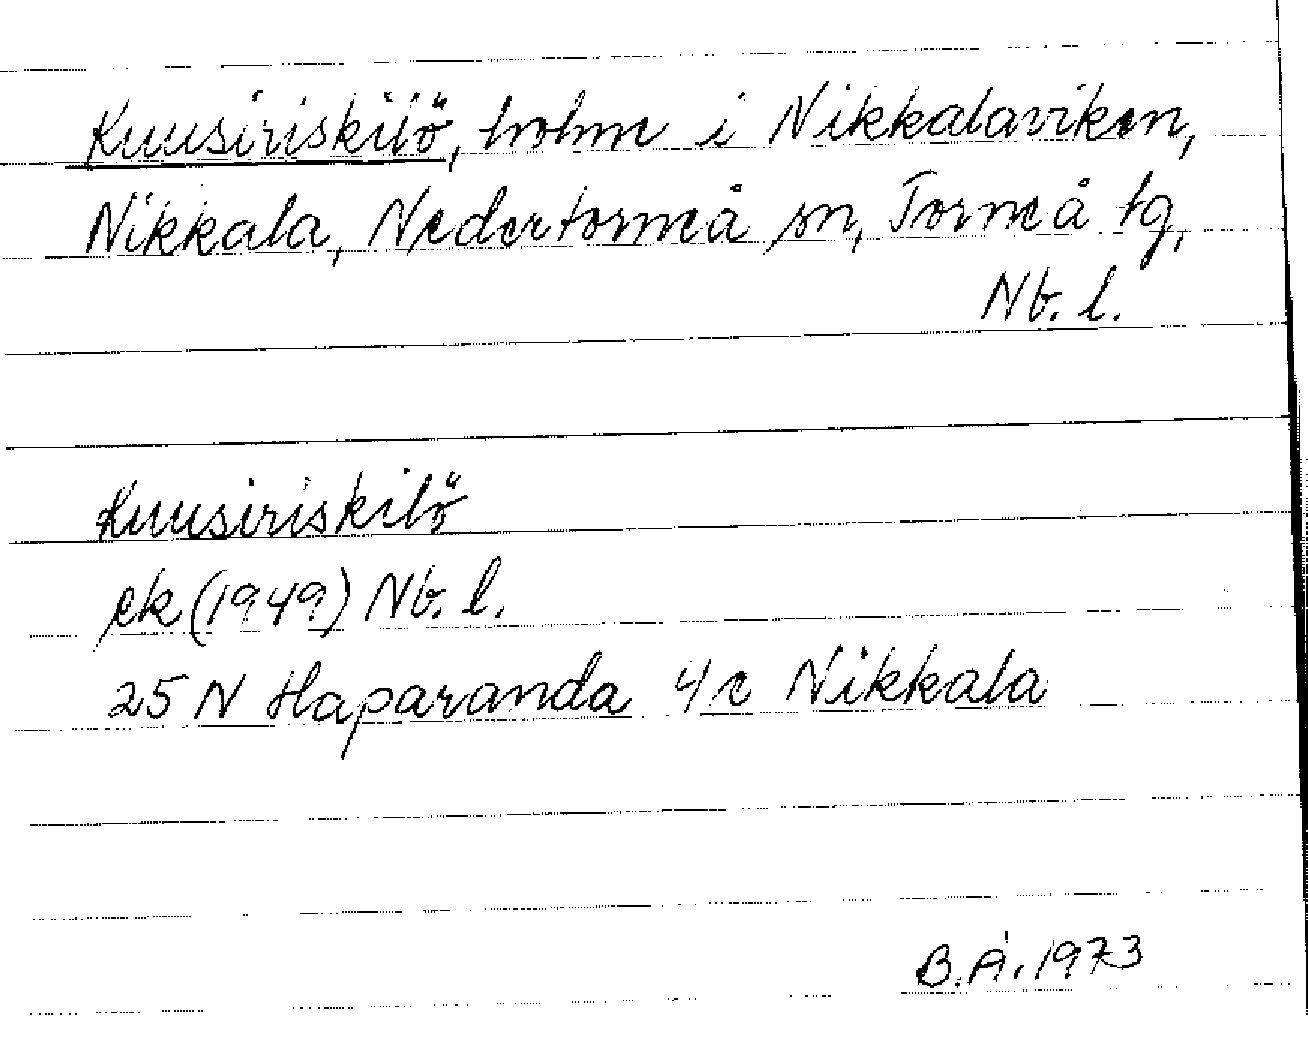 Kuusiriskilö, holme i Nikkalaviken,
Nikkala, Nedertorneå sn, Torneå tg,
Nb. l.
Kuusiriskilö
ek (1949) Nb. l.
25 N Haparanda 4 c Nikkala
B.Å. 1973